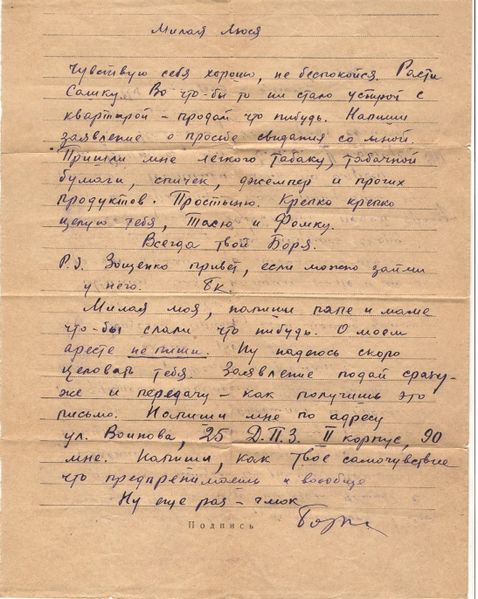 Милая Люся
Чувствую себя хорошо, не беспокойся. Расти
Сашку. Во что-бы то ни стало устрой с
квартирой – продай что нибудь. Напиши
заявление о просьбе свидания со мной.
Пришли мне лёгкого табаку, табачной
бумаги, спичек, джемпер и прочих
продуктов. Простыню. Крепко крепко
целую тебя, Тасю и Фомку.
Всегда твой Боря.
P.S. Зощенко привет, если можно займи
у него. Бк.
Милая моя, напиши папе и маме
что-бы слали что нибудь. О моем
аресте не пиши. Ну надеюсь скоро
целовать тебя. Заявление подай сразу-
же и передачу – как получишь это
письмо. Напиши мне по адресу
ул. Воинова, 25 Д.П.З. II корпус, 90
мне. Напиши, как твое самочувствие
что предпринимаешь и вообще
Ну еще раз – чмок
Боря
Подпись